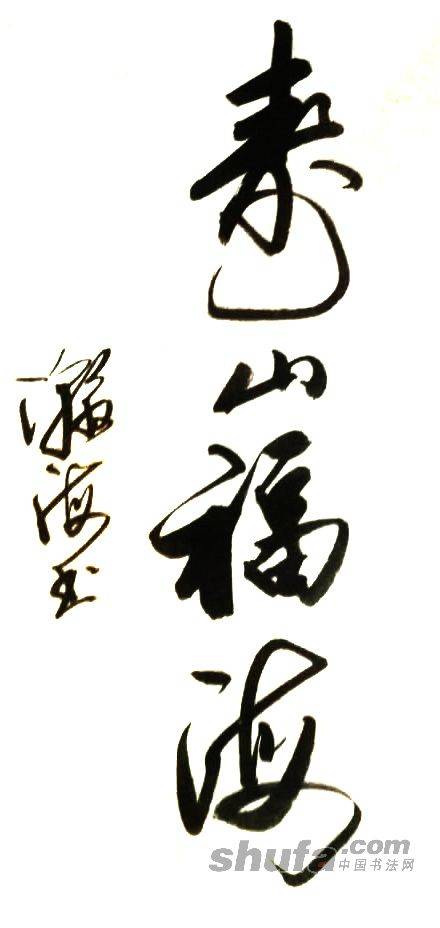 寿山福海
瀚海书
shufa.com
中国书法网